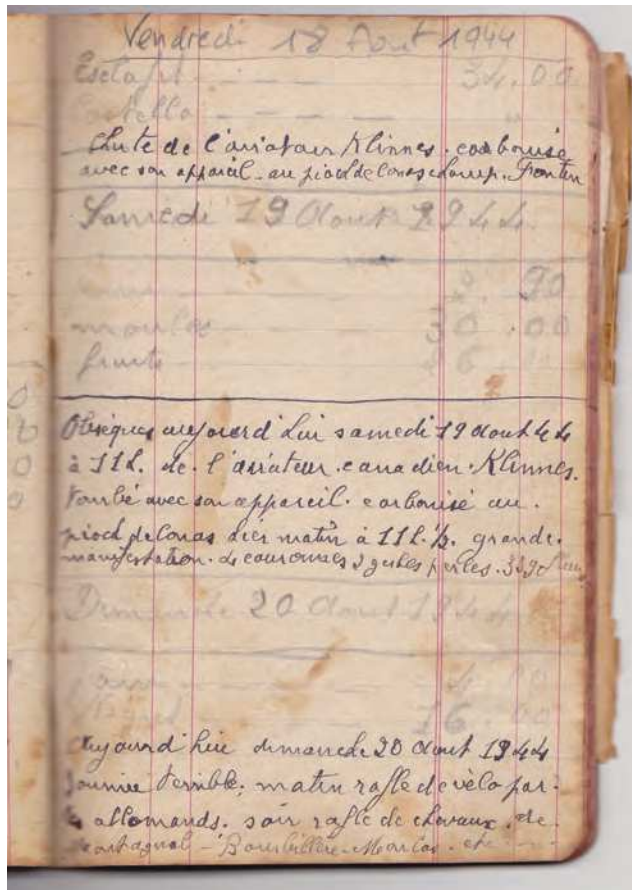 Vendredi 18 Aout 1944
34.00
Chute de l'aviateur Klinnes. carbonisé
avec son appareil. au piod de Conas champ. Frontin
Samedi 19 Aout 1944
90
30.00
fruits 6
Obsèques aujourd'hui samedi 19 Aout 44
à 11h. de l'aviateur canadien. Klinnes.
Tombé avec son appareil. carbonisé au.
piod de Conas hier matin à 11h.½. grande.
manifestation. 4 couronnes 2 gerbes perles.
Dimanche 20 Aout 1944
4.00
16.00
Aujourd'hui dimanche 20 Aout 1944
Journée terrible. matin rafle de vélo par.
allemands. soir rafle de chevaux. de